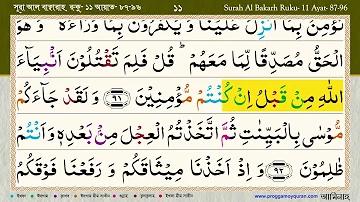 সূরা আল বাক্বারাহ, রুকু- ১১ আয়াত- ৮৭-৯৬ ১১ Surah Al Bakarh Ruku- 11 Ayat- 87-96
نُؤْمِنُ بِمَآ اُنْزِلَ عَلَيْنَا وَيَكْفُرُوْنَ بِمَا وَرَآءَهٗ وَهُوَ
الْحَقُّ مُصَدِّقًا لِّمَا مَعَهُمْ ؕ قُلْ فَلِمَ تَقْتُلُوْنَ اَنْۢبِيَآءَ
اللّٰهِ مِنْ قَبْلُ اِنْ كُنْتُمْ مُّؤْمِنِيْنَ ﴿٩١﴾ وَلَقَدْ جَآءَكُمْ
مُّوْسٰى بِالْبَيِّنٰتِ ثُمَّ اتَّخَذْتُمُ الْعِجْلَ مِنْۢ بَعْدِهٖ وَاَنْتُمْ
ظٰلِمُوْنَ ﴿٩٢﴾ وَاِذْ اَخَذْنَا مِيْثَاقَكُمْ وَرَفَعْنَا فَوْقَكُمُ
www.proggamoyquran.com